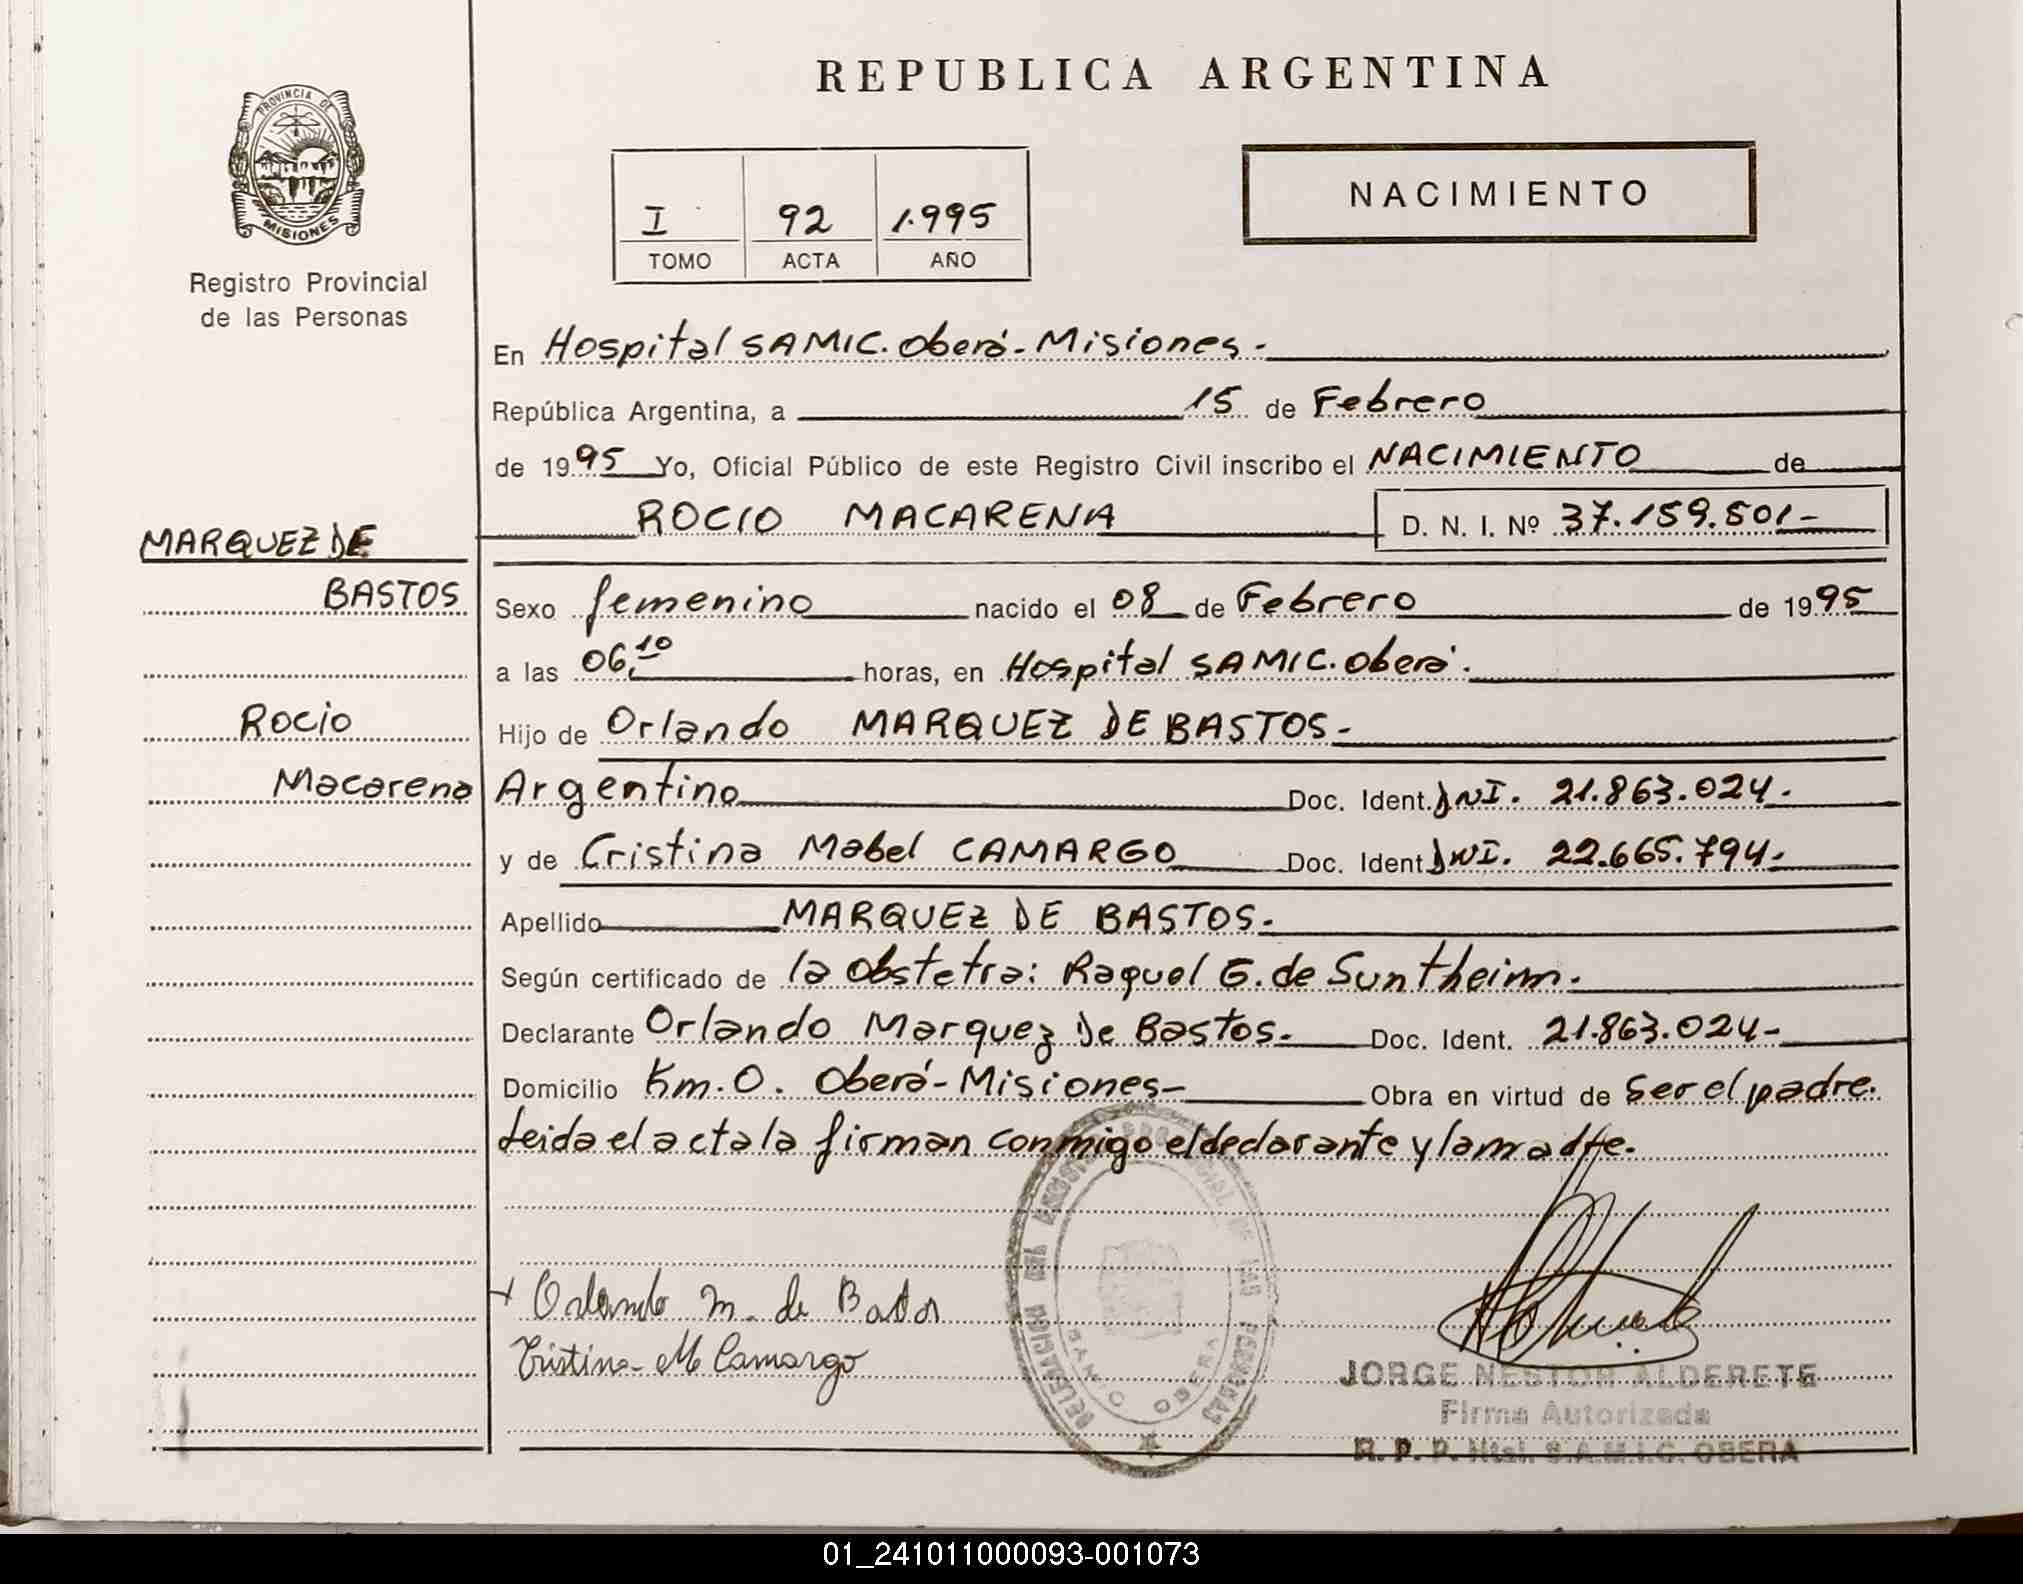 REPUBLICA ARGENTINA
PROVINCIA DE
MISIONES
Registro Provincial
de las Personas
I 92 1.995
TOMO ACTA AÑO
NACIMIENTO
En Hospital SAMIC. Oberá - Misiones -
República Argentina, a 15 de Febrero
de 1995 Yo, Oficial Público de este Registro Civil inscribo el NACIMIENTO de
ROCIO MACARENA D. N. I. Nº 37.159.501-
MARQUEZ DE
BASTOS
Rocio
Macarena
Sexo femenino nacido el 08 de Febrero de 1995
a las 06,10 horas, en Hospital SAMIC. Oberá.
Hijo de Orlando MARQUEZ DE BASTOS -
Argentino Doc. Ident. DNI. 21.863.024-
y de Cristina Mabel CAMARGO Doc. Ident. DNI. 22.665.794-
Apellido MARQUEZ DE BASTOS -
Según certificado de la obstetra: Raquel G. de Suntheim -
Declarante Orlando Marquez De Bastos - Doc. Ident. 21.863.024-
Domicilio Km. 0. Oberá - Misiones - Obra en virtud de ser el padre.
Leida el acta la firman conmigo el declarante y la madre.
DELEGACION DEL REGISTRO PROVINCIAL DE LAS PERSONAS
OBERA
Orlando M. de Bastos
Cristina M Camargo
JORGE NESTOR ALDERETE
Firma Autorizada
R. P. P. Htal. S.A.M.I.C. OBERA
01_241011000093-001073